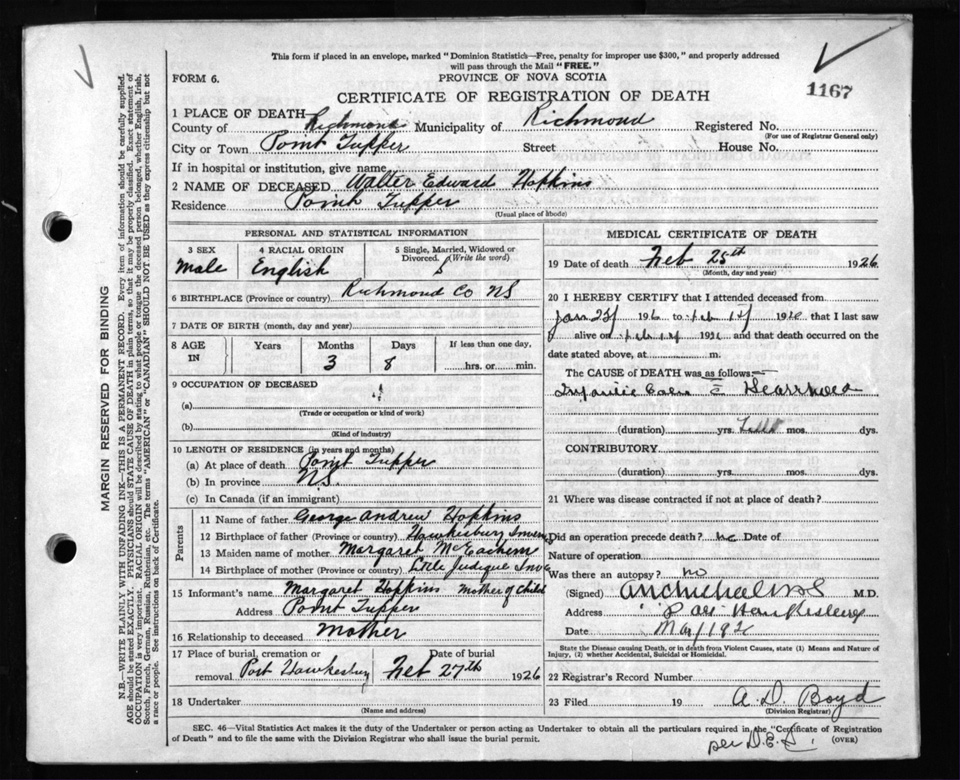 This form if placed in an envelope, marked "Dominion Statistics—Free, penalty for improper use $300," and properly addressed
will pass through the Mail "FREE."
FORM 6.
PROVINCE OF NOVA SCOTIA
1167
CERTIFICATE OF REGISTRATION OF DEATH
1 PLACE OF DEATH
County of Richmond Municipality of Richmond Registered No.
(For use of Registrar General only)
City or Town Point Tupper Street House No.
If in hospital or institution, give name
2 NAME OF DECEASED Walter Edward Hopkins
Residence Point Tupper
(Usual place of abode)
PERSONAL AND STATISTICAL INFORMATION
3 SEX 4 RACIAL ORIGIN 5 Single, Married, Widowed or
Divorced. (Write the word)
Male English S
6 BIRTHPLACE (Province or country) Richmond Co NS
7 DATE OF BIRTH (month, day and year)
8 AGE IN Years Months Days If less than one day,
3 8 hrs. or min.
9 OCCUPATION OF DECEASED
(a)
(Trade or occupation or kind of work)
(b)
(Kind of industry)
10 LENGTH OF RESIDENCE (in years and months)
(a) At place of death Point Tupper
(b) In province N.S.
(c) In Canada (if an immigrant)
Parents
11 Name of father George Andrew Hopkins
12 Birthplace of father (Province or country) Hawkesbury
13 Maiden name of mother Margaret McEachern
14 Birthplace of mother (Province or country) Little Judique
15 Informant's name Margaret Hopkins Mother of Child
Address Point Tupper
16 Relationship to deceased Mother
17 Place of burial, cremation or Date of burial
removal Port Hawkesbury Feb 27th 1926
18 Undertaker
(Name and address)
MEDICAL CERTIFICATE OF DEATH
19 Date of death Feb 25th 1926
(Month, day and year)
20 I HEREBY CERTIFY that I attended deceased from
Jan 192 to 192 that I last saw
alive on 192 and that death occurred on the
date stated above, at m.
The CAUSE OF DEATH was as follows:
(duration) yrs. mos. dys.
CONTRIBUTORY
(duration) yrs. mos. dys.
21 Where was disease contracted if not at place of death?
Did an operation precede death? no Date of
Nature of operation
Was there an autopsy? no
(Signed) M.D.
Address
Date
State the Disease causing Death, or in death from Violent Causes, state (1) Means and Nature of
Injury, (2) whether Accidental, Suicidal or Homicidal.
22 Registrar's Record Number
23 Filed 19 A. D. Boyd
(Division Registrar)
per D.E.L.
SEC. 46—Vital Statistics Act makes it the duty of the Undertaker or person acting as Undertaker to obtain all the particulars required in the "Certificate of Registration
of Death" and to file the same with the Division Registrar who shall issue the burial permit.
(OVER)
MARGIN RESERVED FOR BINDING
N.B.—WRITE PLAINLY WITH UNFADING INK—THIS IS A PERMANENT RECORD. Every item of information should be carefully supplied.
AGE should be stated EXACTLY. PHYSICIANS should STATE CAUSE OF DEATH in plain terms, so that it may be properly classified. Exact statement of
OCCUPATION is very important. RACIAL ORIGIN will be described by stating to what people or tongue the deceased person belonged, whether English, Irish,
Scotch, French, German, Russian, Ruthenian, etc. The terms "AMERICAN" or "CANADIAN" SHOULD NOT BE USED as they express citizenship but not
a race or people. See instructions on back of Certificate.